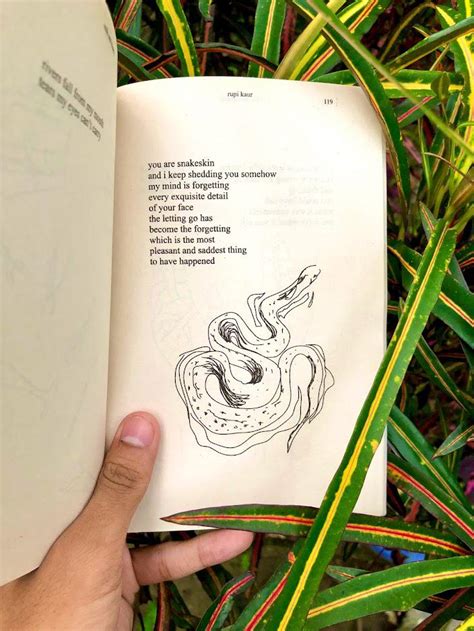 rivers fall from my mouth
tears my eyes can't carry
rupi kaur
119
you are snakeskin
and i keep shedding you somehow
my mind is forgetting
every exquisite detail
of your face
the letting go has
become the forgetting
which is the most
pleasant and saddest thing
to have happened